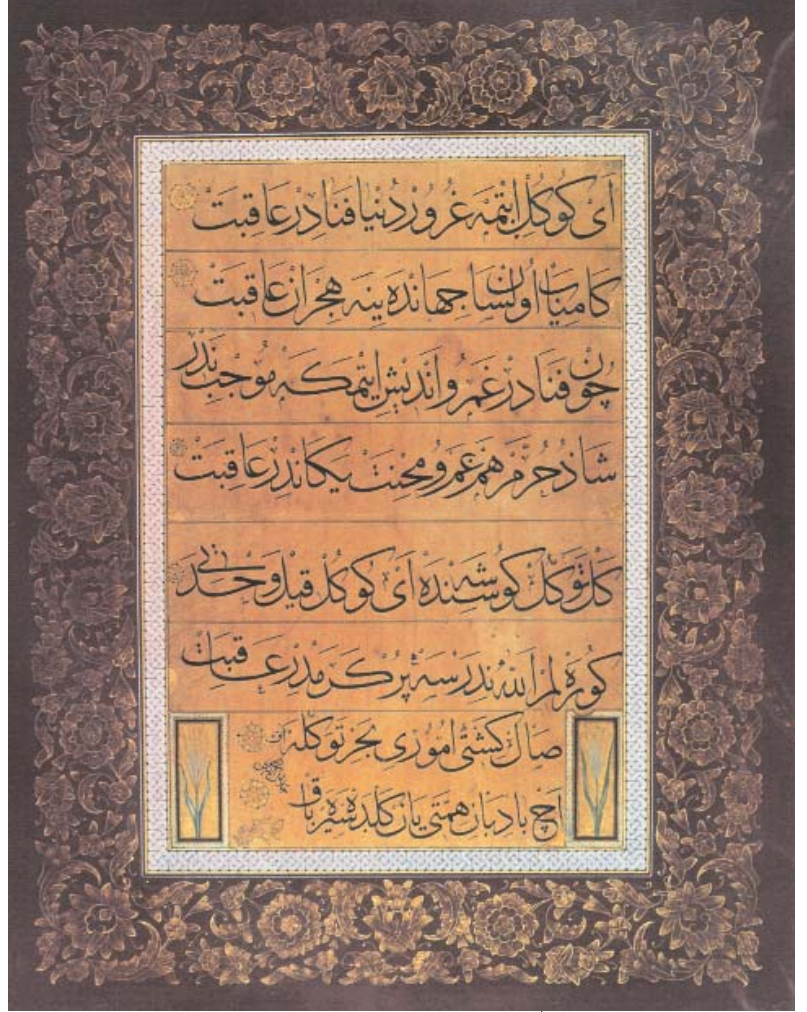 اَی كُوكُلْ ایتْمَه غُرُورْ دُنْیا فَنَادِرْ عَاقِبَتْ
كَامیَابْ اولسَا جِهَانْدَه یِنَه هِجْرَانْ عَاقِبَتْ
چُونْ فَنَادِرْ غَمْ و اَنْدِیشْ ایتْمَكَه مُوجِبْ نَدِرْ
شَاذُ خُرَّمْ هَمْ غَمْ و مِحْنَتْ یَكَانْدِرْ عَاقِبَتْ
كَلْ تَوَكُّلْ كُوشَه سِنْدَه اَی كُوكُلْ قِیلْ وَحْدَتی
كُورَه لِمْ اللهُ نَدِرْسَه كَرَمْدَرْ عَاقِبَتْ
صَالْ كَشْتیِٔ امُوری بَحْرِ تَوَكُّلَه
اَچْ بَادِبَانِ هِمَّتی یَانْ كَلْدِه سَیْرَه بَاقْ